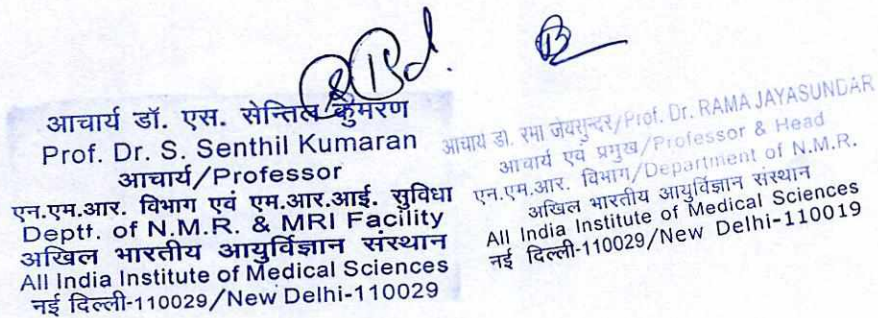 आचार्य डॉ. एस. सेन्तिल कुमरण
Prof. Dr. S. Senthil Kumaran
आचार्य/Professor
एन.एम.आर. विभाग एवं एम.आर.आई. सुविधा
Deptt. of N.M.R. & MRI Facility
अखिल भारतीय आयुर्विज्ञान संस्थान
All India Institute of Medical Sciences
नई दिल्ली-110029/New Delhi-110029
आचार्य डॉ. रमा जेयसुन्दर/Prof. Dr. RAMA JAYASUNDAR
आचार्य एवं प्रमुख/Professor & Head
एन.एम.आर. विभाग/Department of N.M.R.
अखिल भारतीय आयुर्विज्ञान संस्थान
All India Institute of Medical Sciences
नई दिल्ली-110029/New Delhi-110019